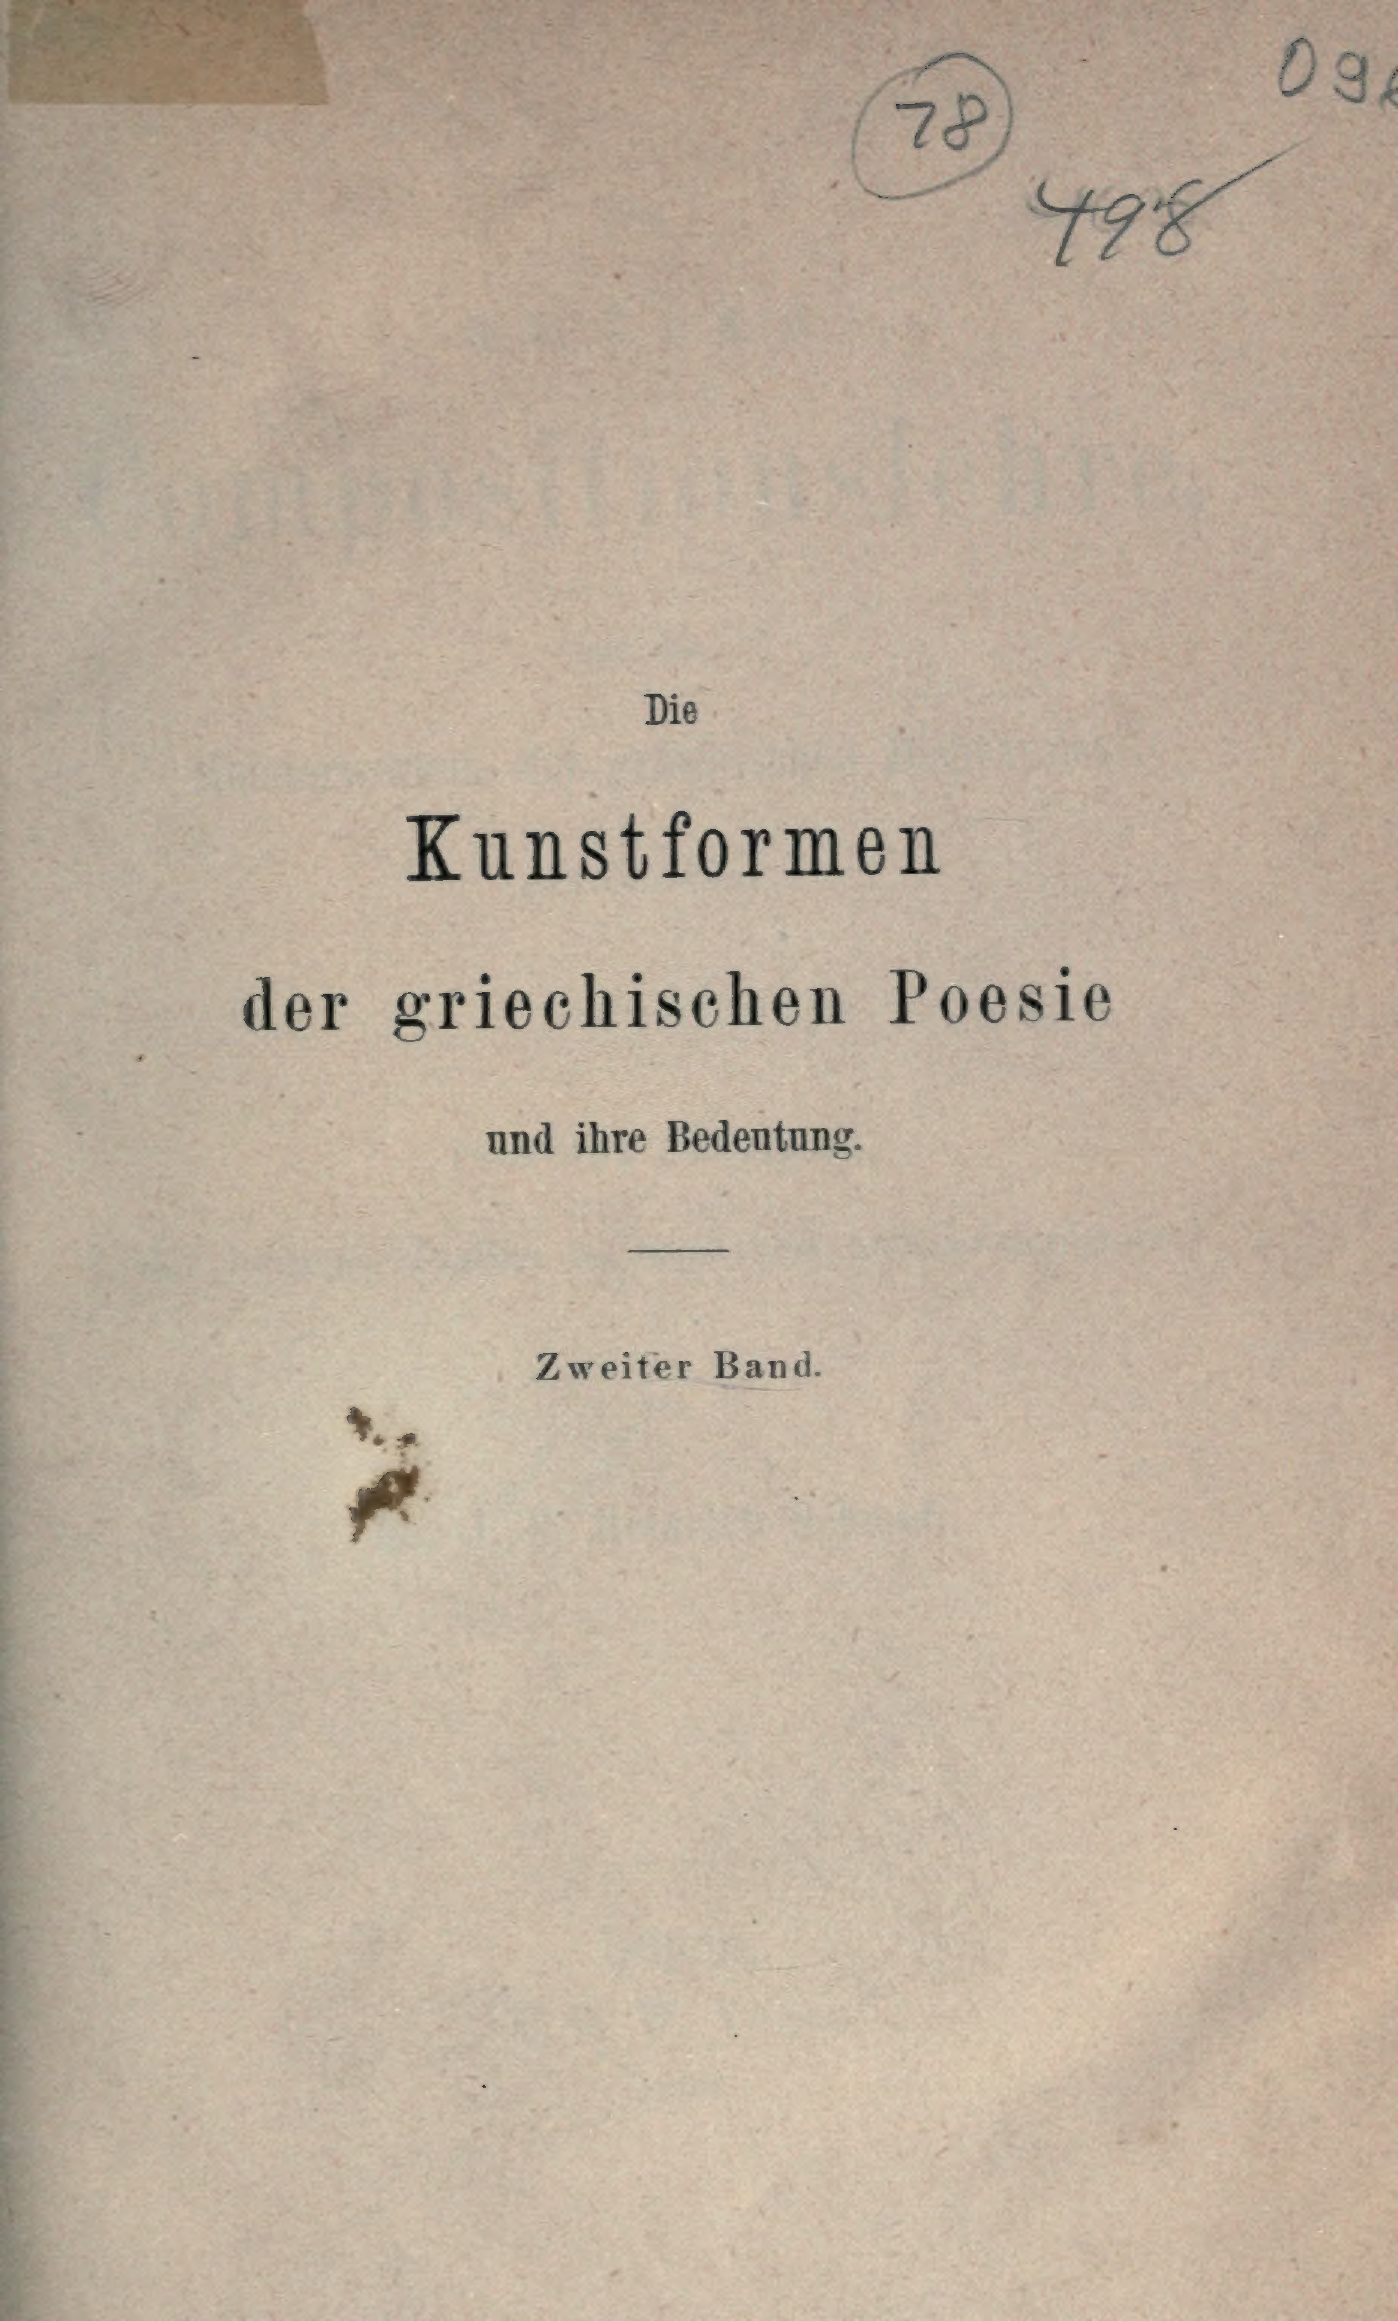 78
498
Die
Kunstformen
der griechischen Poesie
und ihre Bedeutung.
Zweiter Band.